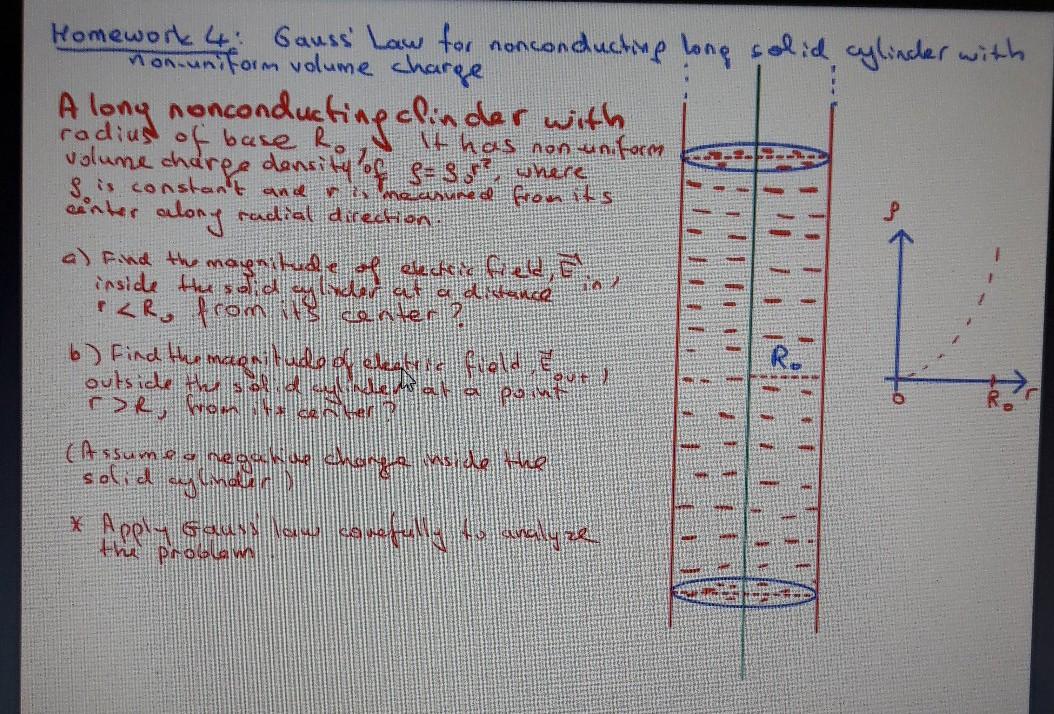 Homework 4: Gauss' Law for nonconducting long solid cylinder with
non-uniform volume charge
A long nonconducting clinder with
radius of base R₀, It has non-uniform
volume charge density of ρ=ρ₀r², where
ρ₀ is constant and r is meanured from its
center along radial direction.
a) Find the magnitude of electric field, E⃗in,
inside the solid cylinder at a distance
r<R₀ from its center?
b) Find the magnitude of electric field, E⃗out,
outside the solid cylinder at a point
r>R₀ from its center?
(Assume a negative charge inside the
solid cylinder)
* Apply Gauss' law carefully to analyze
the problem
R₀
ρ
0
R₀
r